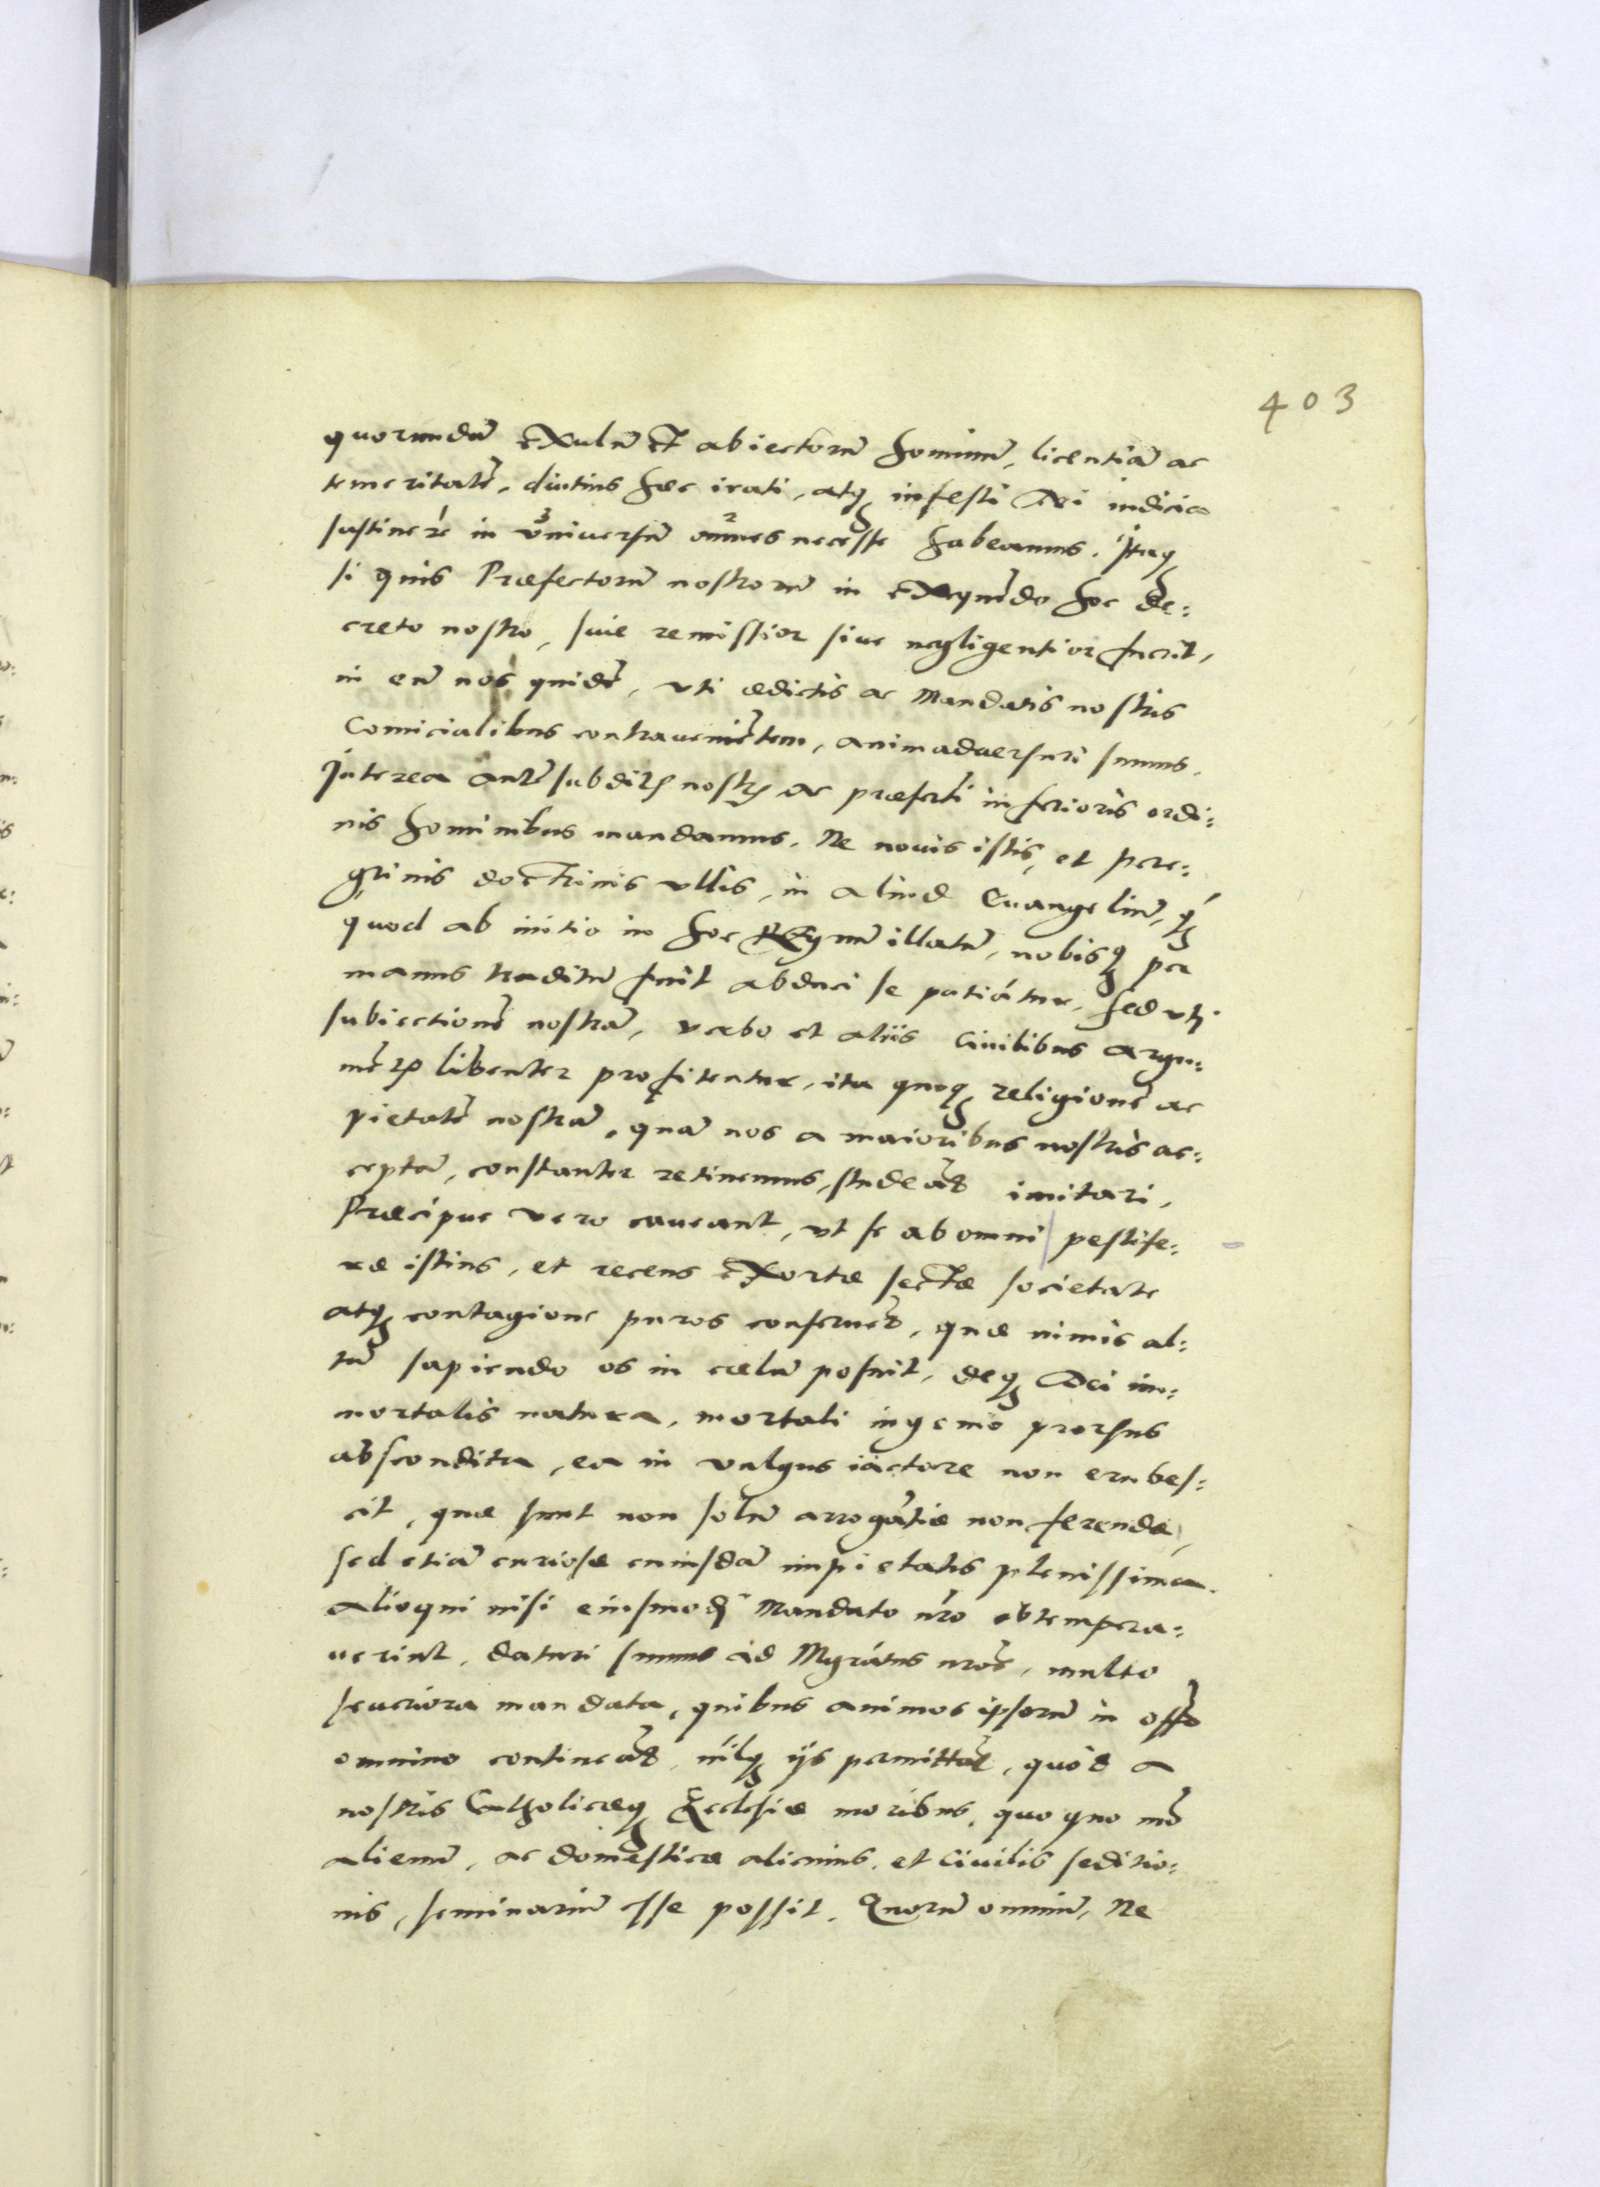 403
quorundã exulũ et abiectorũ hominũ, licentiã ac
temeritatẽ, diutius hæc irati, atq; infesti Dei iudicia
sustinere in universũ omnes necesse habeamus. Itaq;
si quis Præfectorũ nostrorũ in exequẽdo hoc de:
creto nostro, siue remissior siue negligentior fuerit,
in eũ nos quidẽ, vti ædictis ac Mandatis nostris
Comicialibus contravenientem, animadversuri sumus.
Interea autẽ subditis nostris ac præsertĩ inferioris ordi:
nis hominibus mandamus. Ne novis istis, et pere:
grinis doctrinis ullis, in aliud Evangeliũ, q̃
quod ab initio in hoc Regnũ illatũ, nobisq; per
manus traditũ fuit abduci se patiãtur, sed uti
subiectionẽ nostrã, verbo et aliis civilibus argu:
mẽtis libenter profitentur, ita quoq; religionẽ ac
pietatẽ nostrã, quã nos a maioribus nostris ac:
ceptã, constanter retinemus, studeãt imitari,
Præcipue vero caveant, ut se ab omni pestife:
ræ istius, et recens exortæ sectæ societate
atq; contagione puros conservẽt, quæ nimis al:
tũ sapiendo os in cælũ posuit, deq; Dei im:
mortalis natura, mortali ingenio prorsus
abscondita, ea in vulgus iactare non erubes:
cit, quæ sunt non solũ arrogãtiæ non ferendæ,
sed etiã curiosæ cuiusdã impietatis plenissima.
Alioqui nisi eiusmodi Mandato nr̃o obtempera:
verint, daturi sumus ad Mgrãtus nros, multo
severiora mandata, quibus animos ipsorũ in offo
omnino contineãt, nilq; iis permittãt, quod a
nostris Catholicæq; Ecclesiæ moribus, quoquo mõ
alienũ, ac domesticæ alicuius, et civilis seditio:
nis, seminariũ esse possit. Quorũ omniũ, Ne